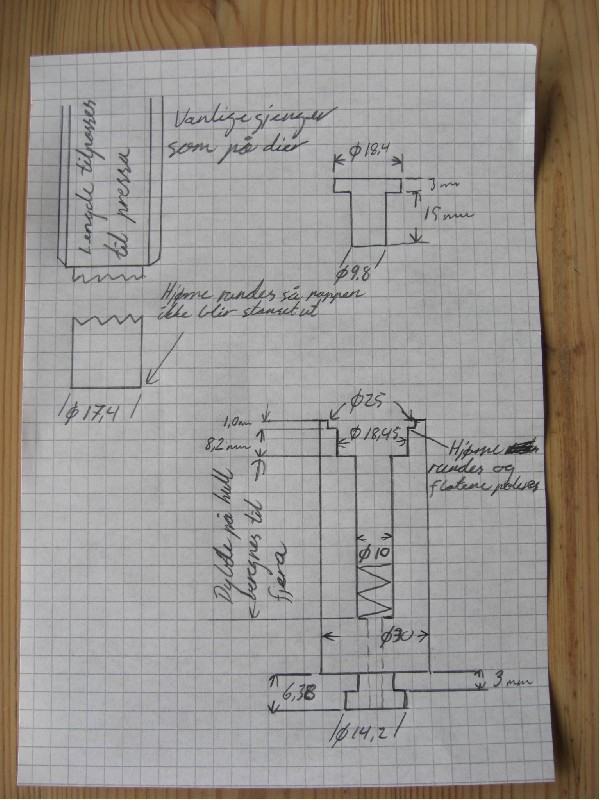 Lengde tilpasses
til pressa
Vanlige gjenger
som på dier
φ18,4
3mm
15mm
φ9.8
Hjørne rundes så pappen
ikke blir stanset ut
φ17,4
φ25
1,0mm
φ18,45
8,2mm
Hjørne
rundes og
flatene poleres
Dybde på hull
beregnes til
fjera
φ10
φ30
6,38
3mm
φ14,2